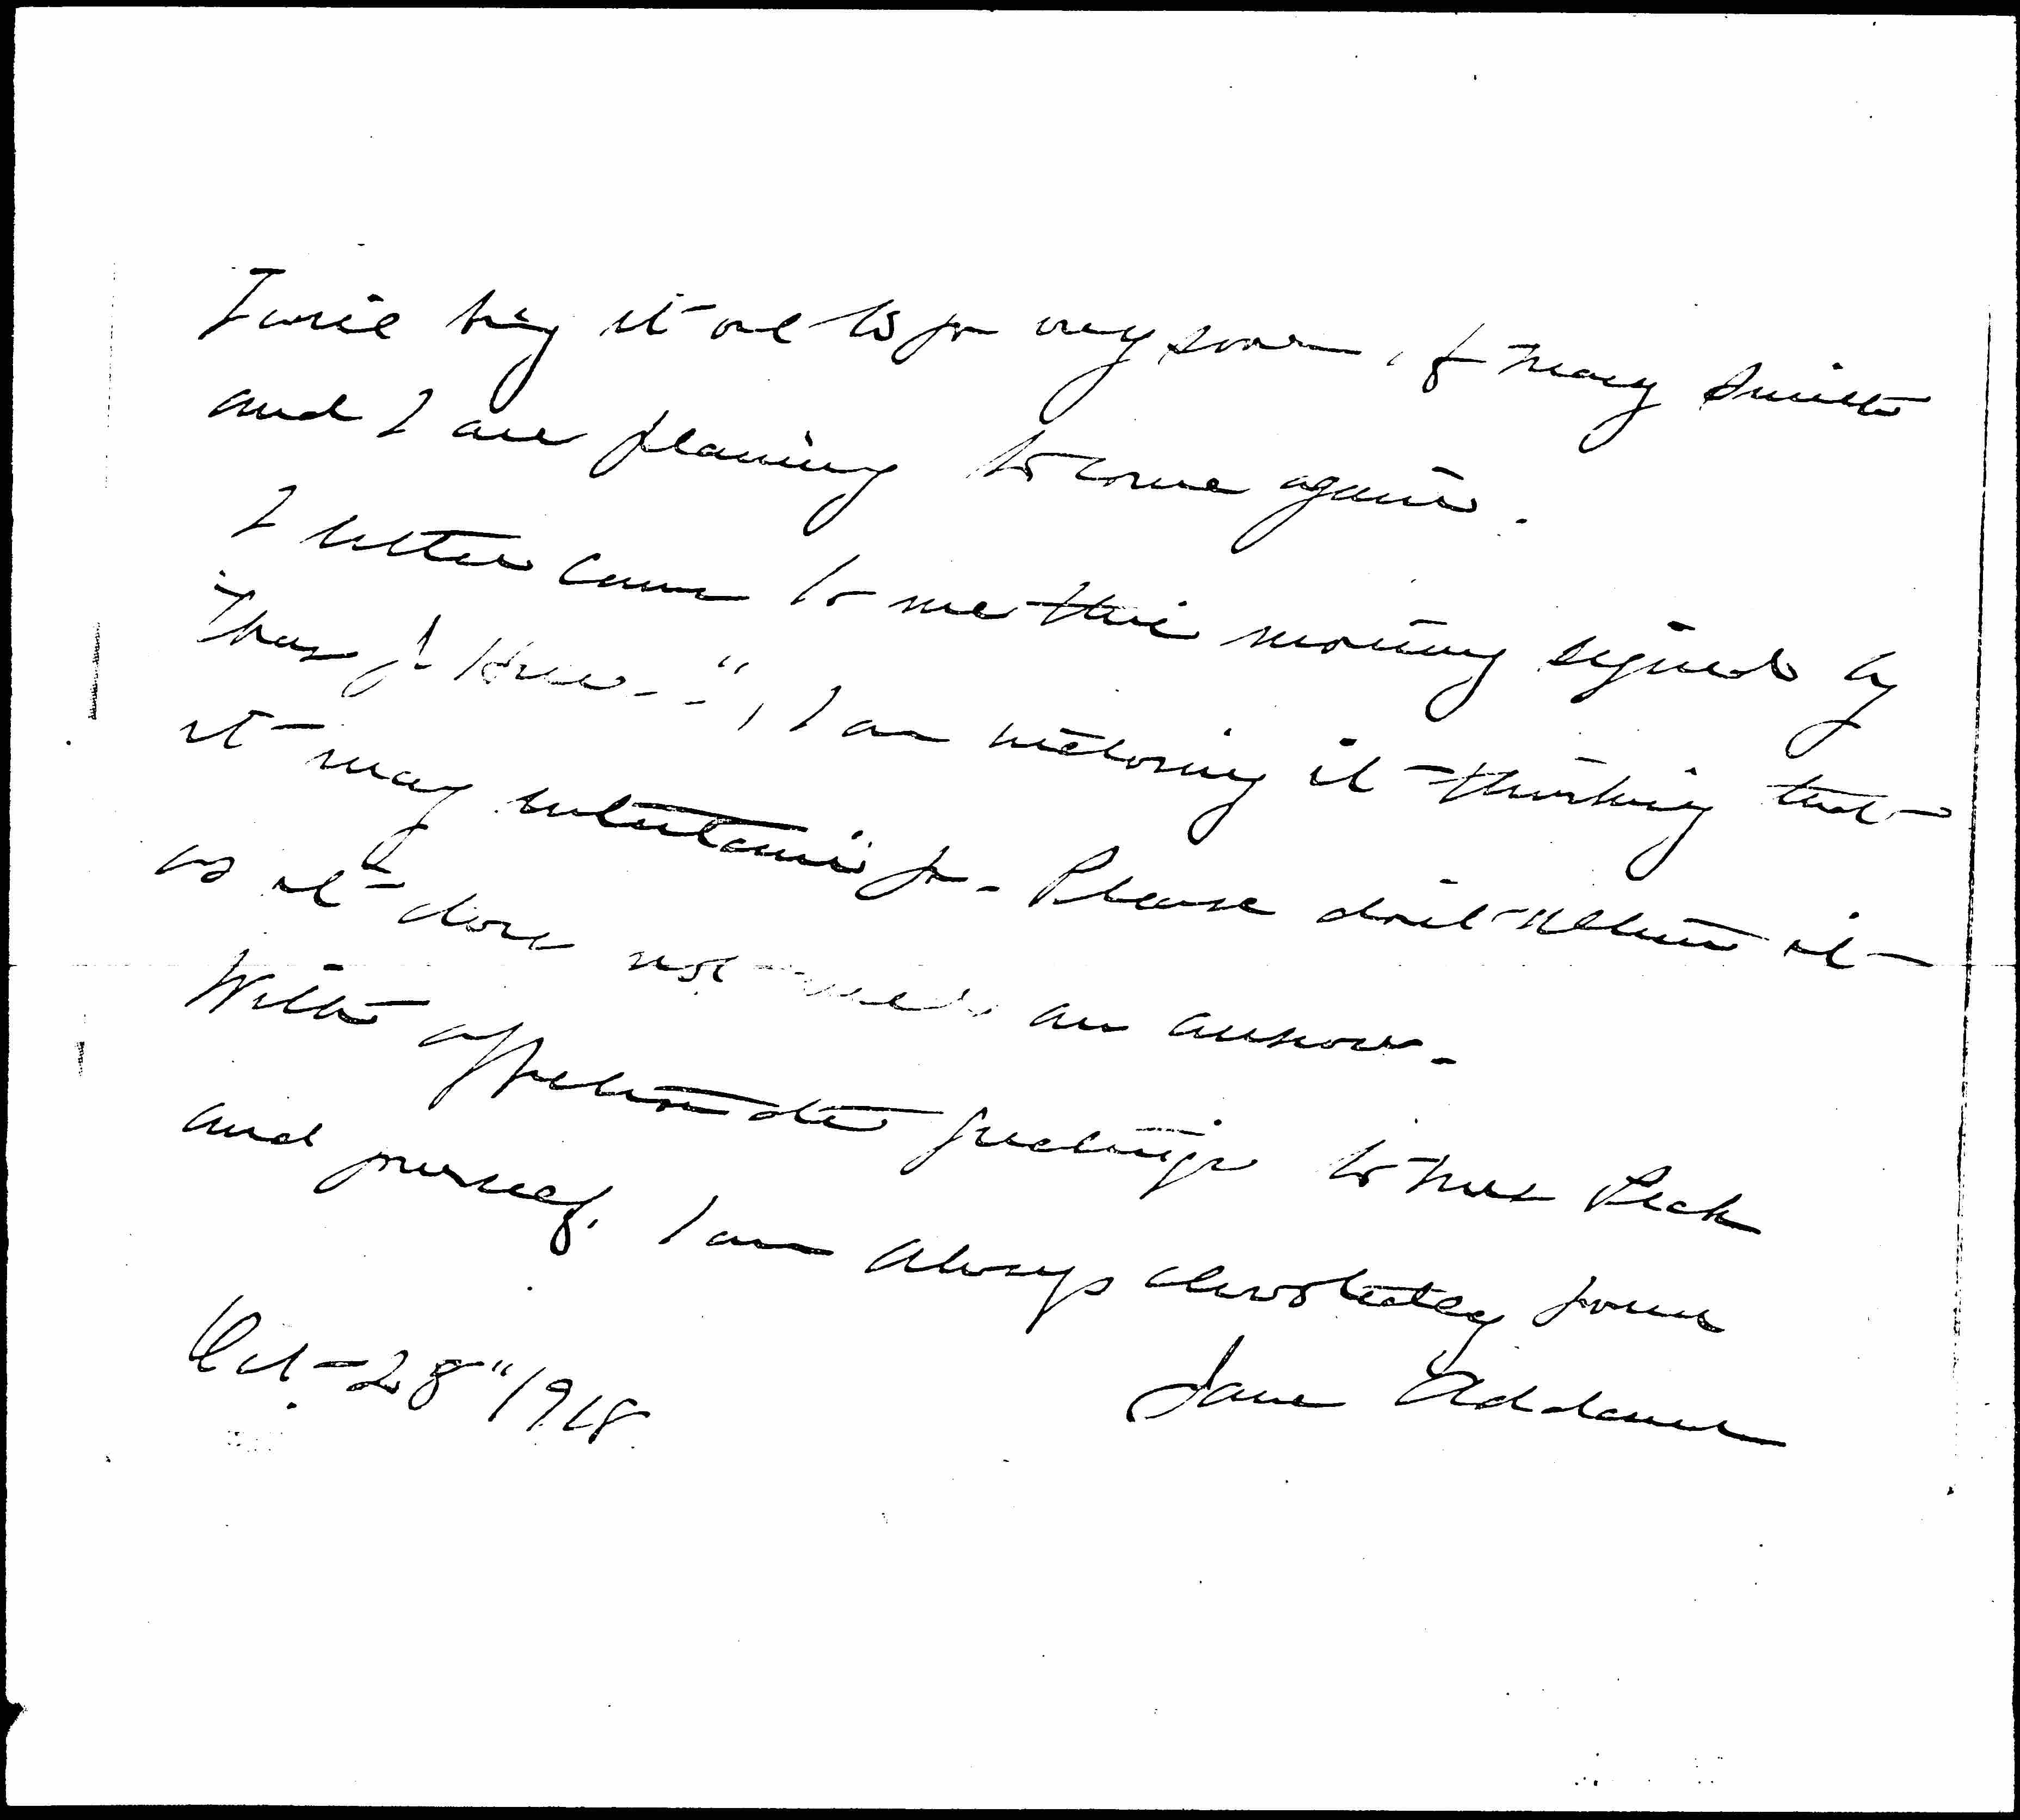 I will bring it out to you very soon, if Mary Smith
and I are planning to come again.
A letter came to me this morning signed by
"Thos J", I am enclosing it thinking that
it may entertain you. Please don't return it
as it does not need an answer.
With affectionate greetings to Miss Peck
and yourself. I am always devotedly yours
Jane Addams
Oct 28" 1918